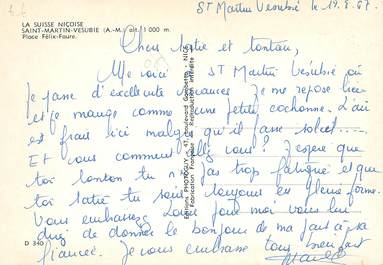 St Martin Vésubie le 19.8.67.
LA SUISSE NIÇOISE
SAINT-MARTIN-VESUBIE (A.-M.) alt. 1 000 m.
Place Félix-Faure.
Chers tatie et tonton,
Me voici à St Martin Vésubie où
je passe d'excellente vacances. Je me repose bien
et je mange comme une petite cochonne. L'air
est frais ici malgré qu'il fasse soleil.
Et vous comment allez vous ? J'espère que
toi tonton tu n'es pas trop fatigué et que
toi tatie tu sois toujours en pleine forme.
Vous embrassez pour moi vous lui
direz de donner le bonjour de ma part à sa
fiancée. Je vous embrasse tous
D 340
Editions PHOTOGUY - 47, boulevard Gambetta - NICE
Fabrication Française - Reproduction interdite